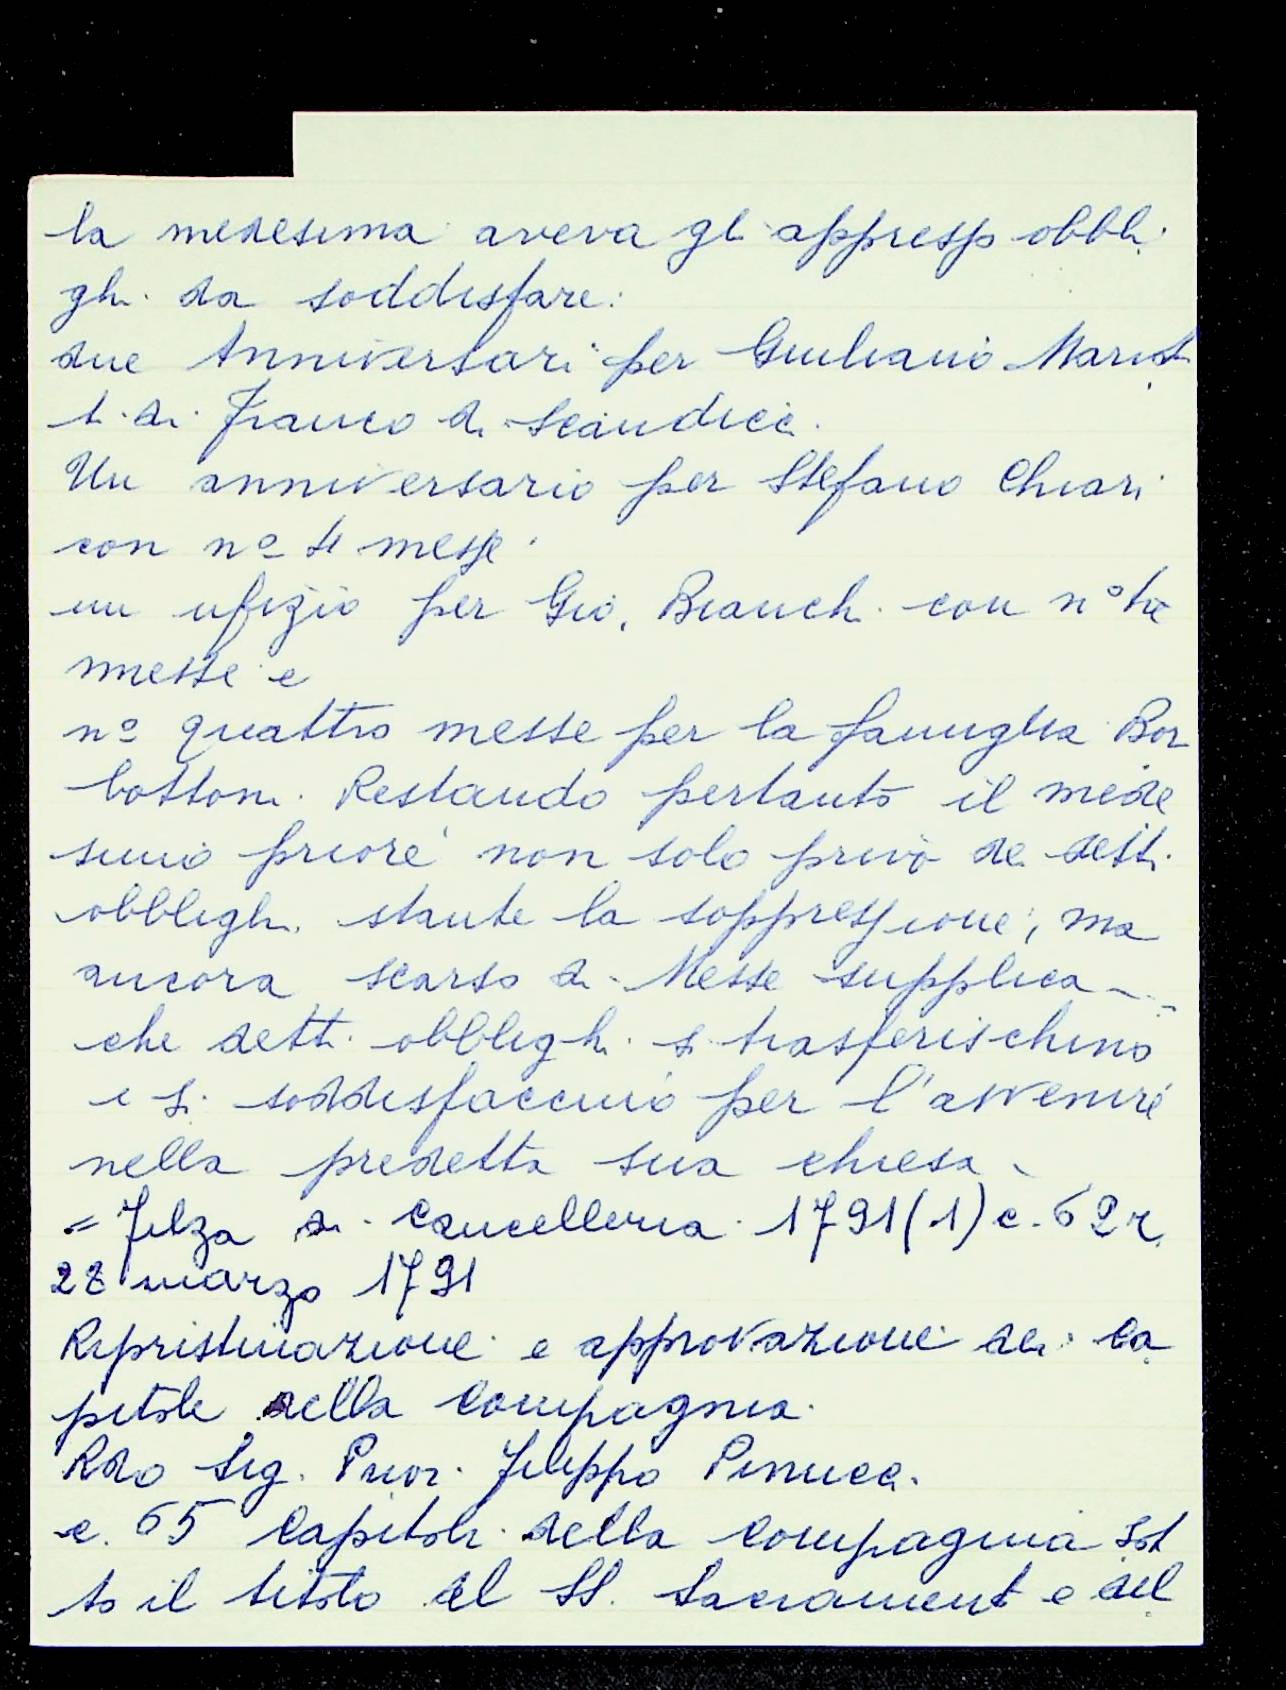 la medesima aveva gli appresso obbli
ghi da soddisfare:
due Anniversari per Giuliano Mariot
ti di Franco di Scandicci.
Un anniversario per Stefano Chiari
con nº 4 messe
un ufizio per Gio. Bianchi con nº tre
messe e
nº quattro messe per la famiglia Bor
bottoni. Restando pertanto il mede
simo priore non solo privo de detti
obblighi stante la soppressione, ma
ancora scarso di Messe supplica
che detti obblighi si trasferischino
e si soddisfaccino per l'avvenire
nella predetta sua chiesa
= Filza di Cancelleria 1791(1) c. 62r.
28 marzo 1791
Ripristinazione e approvazione dei Ca
pitoli della Compagnia.
Rdo Sig. Prior Filippo Pinucci.
c. 65 Capitoli della Compagnia sot
to il titolo del SS. Sacramento e del